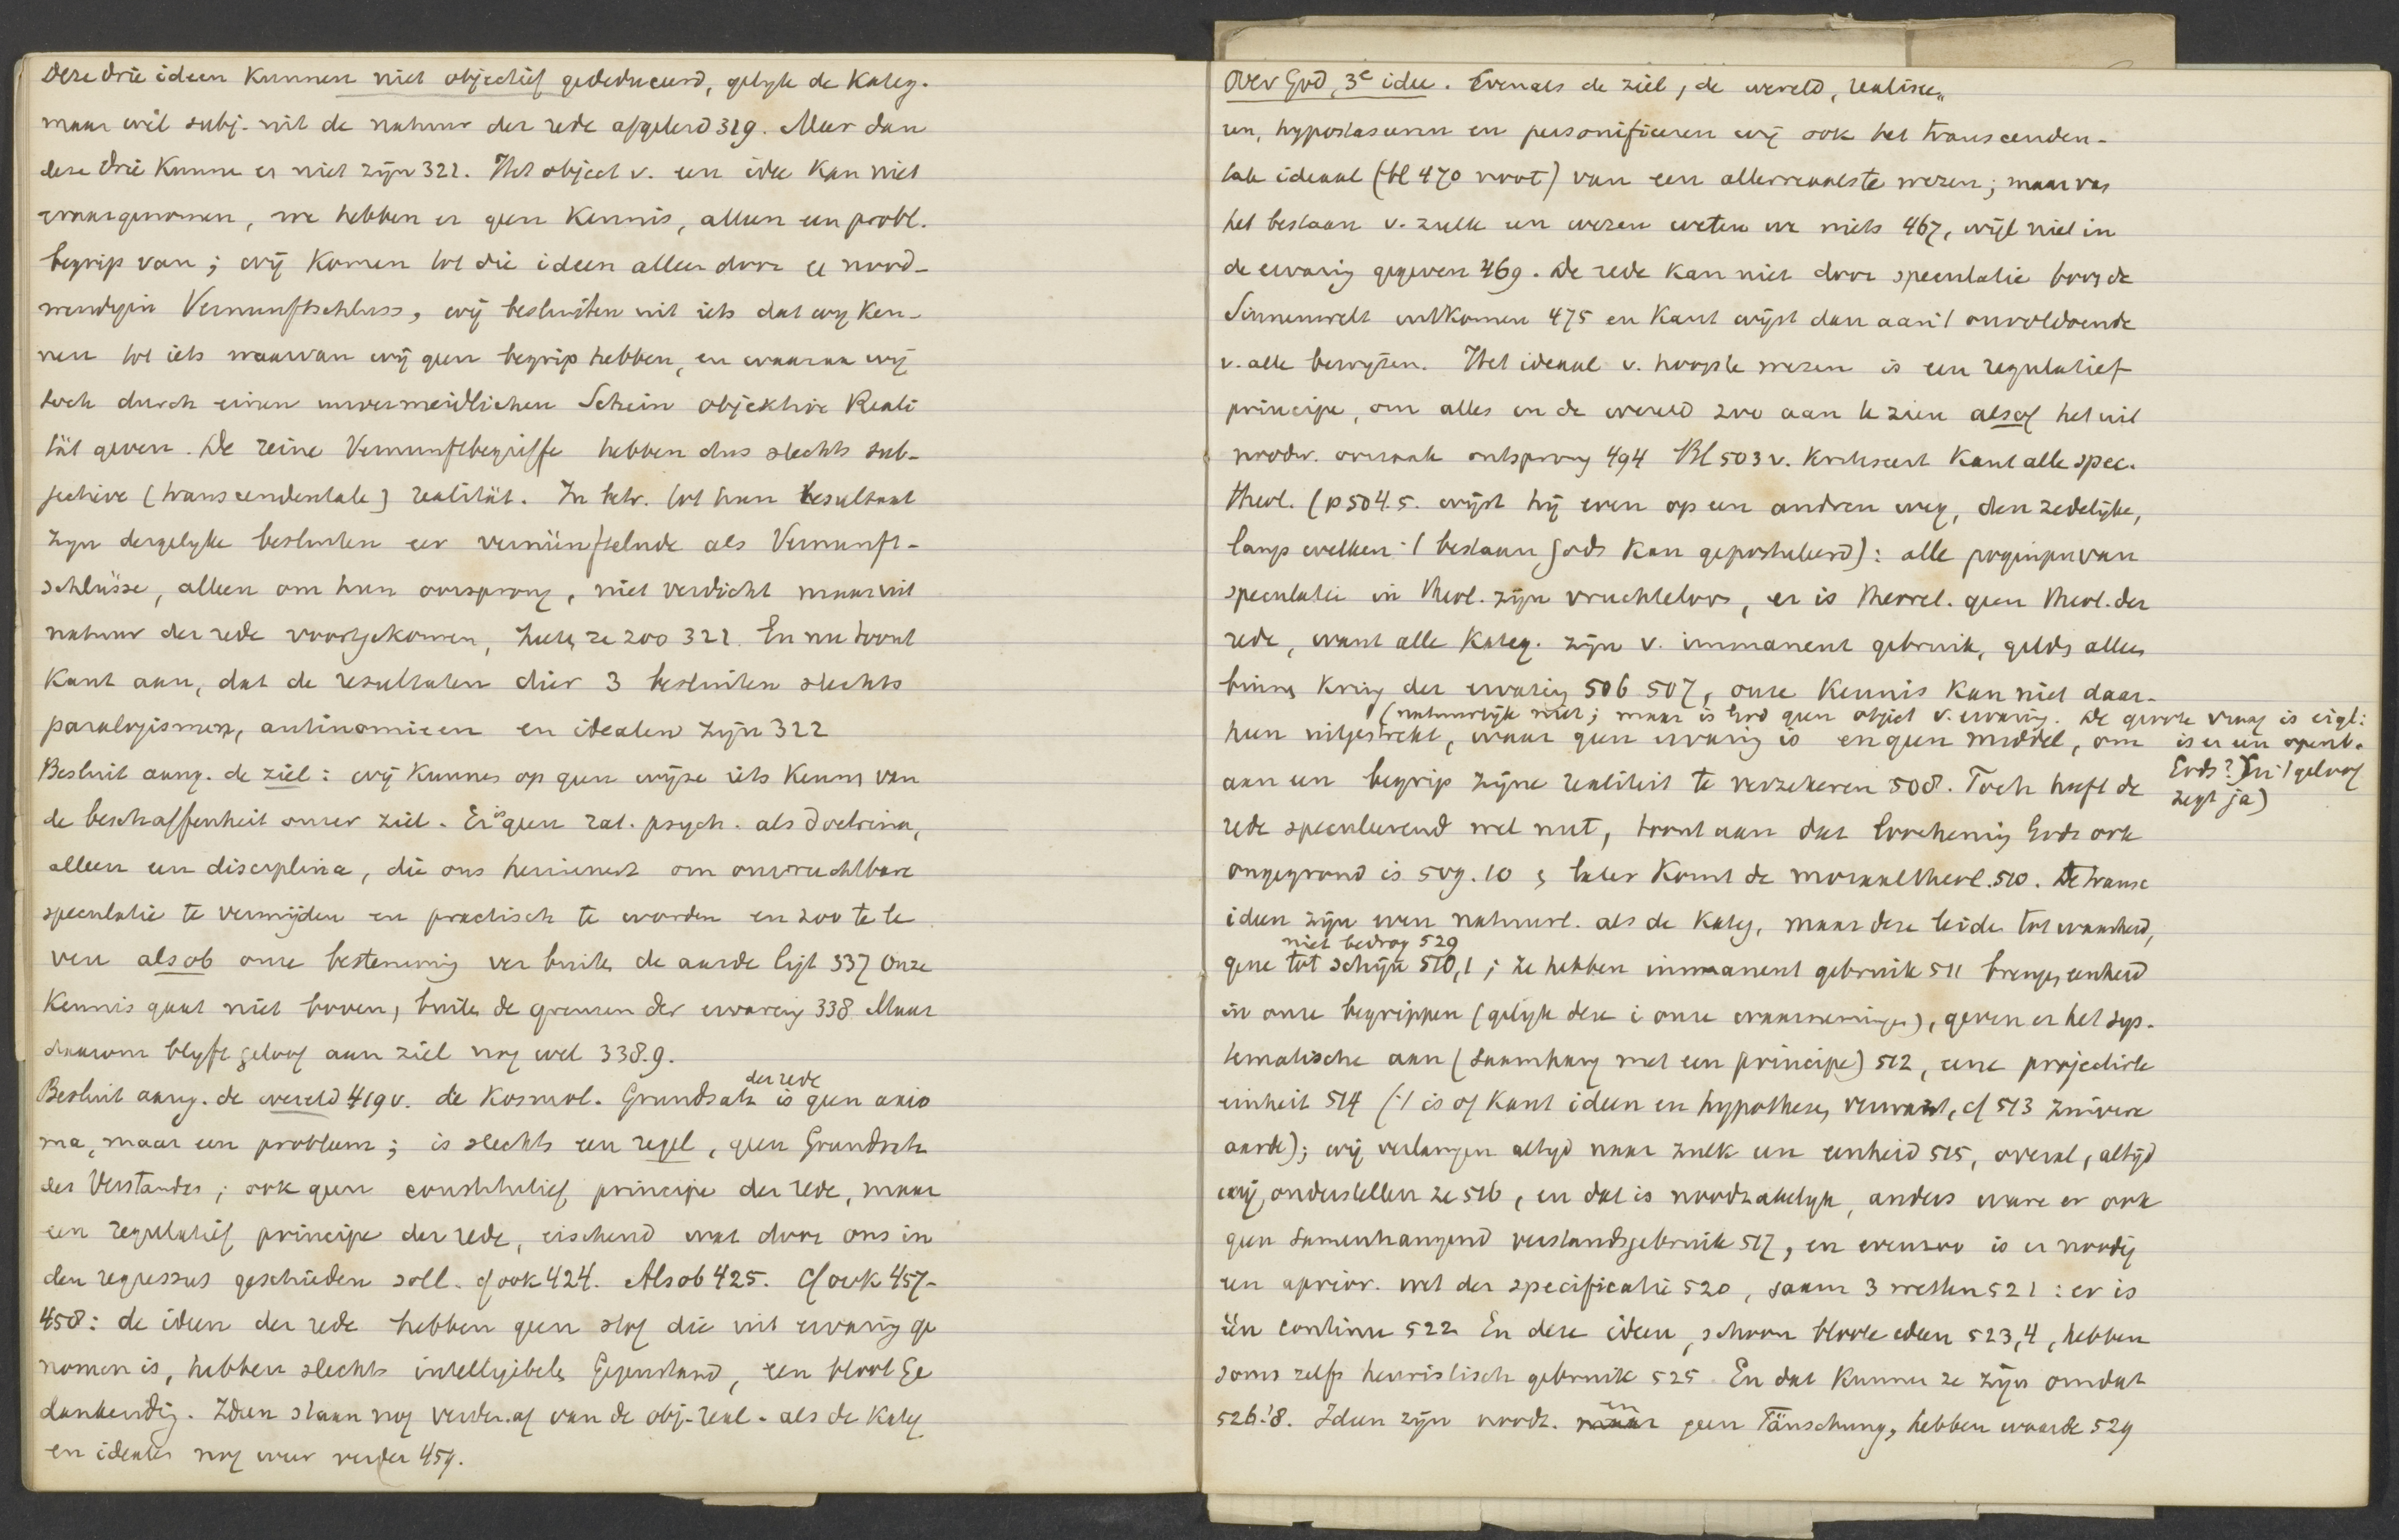 Deze drie ideen kunnen niet objectief gededuceerd, gelyk de Kateg.
maar wel subj. uit de natuur der rede afgeleid 319. Meer dan
deze drie kunne er niet zijn 321. Het object v. een idee kan niet
waargenomen, we hebben er geen kennis, alleen een probl.
begrip van; wij komen tot die ideen alleen door ee nood-
wendigen Vernunftschluss, wij besluiten uit iets dat wy ken-
nen tot iets waarvan wij geen begrip hebben, en waaraan wij
toch durch einen unvermeidlichen Schein objektive Reali
tät geven. De reine Vernunftbegriffe hebben dus slechts sub-
jective (transcendentale) realität. In betr. tot hun resultaat
zyn dergelyke besluiten eer vernünftelnde als Vernunft-
schlüsse, alleen om hun oorsprong, niet verdicht maar uit
natuur der rede voortgekomen, heeten ze zoo 321. En nu toont
Kant aan, dat de resultaten dier 3 besluiten slechts
paralogismen, antinomieen en idealen zyn 322
Besluit aang. de ziel: wij kunnen op geen wijze iets kennen van
de beschaffenheit onzer ziel. Er is geen rat. psych. als doctrina,
alleen een disciplina, die ons herinnert om onvruchtbare
speculatie te vermijden en practisch te worden en zoo te le
ven alsob onze bestemming ver buiten de aarde ligt 337 Onze
Kennis gaat niet boven, buiten de grenzen der ervaring 338 Maar
daarom blyft geloof aan ziel nog wel 338.9.
der rede
Besluit aang. de wereld 419 v. de Kosmol. Grundsatz is geen axio
ma, maar een probleem; is slechts een regel, geen Grundsatz
des Verstandes; ook geen constitutief principe der rede, maar
een regulatief principe der rede, eischend wat door ons in
den regressus geschieden soll. cf ook 424. Alsob 425. Cf ook 457-
458: de ideen der rede hebben geen stof die uit ervaring ge
nomen is, hebben slechts intelligibelen Gegenstand, een bloot Ge
dankending. Ideen staan nog verder af van de obj. real. als de Kateg
en idealen nog weer verder 459.
Over God, 3e idee. Evenals de ziel, de wereld, realisee„
ren, hypostaseeren en personifieeren wij ook het transcenden-
tale ideaal (bl 470 noot) van een allerreaalste wezen; maar van
het bestaan v. zulk een wezen weten we niets 467, wijl niet in
de ervaring gegeven 469. De rede kan niet door speculatie boven de
Sinnenwelt uitkomen 475 en Kant wijst dan aan 't onvoldoende
v. alle bewijzen. Het ideaal v. hoogste wezen is een regulatief
principe, om alles in de wereld zoo aan te zien alsof het uit
noodw. oorzaak ontsprong 494 Bl 503 v. kritiseert Kant alle spec.
theol. (p 504.5. wijst hij even op een andren weg, den zedelijke,
langs welken 't bestaan Gods kan gepostuleerd): alle pogingen van
speculatie in theol. zijn vruchteloos, er is theoret. geen theol. der
rede, want alle Kateg. zijn v. immanent gebruik, gelden alleen
binnen kring der ervaring 506 507, onze kennis kan niet daar-
(natuurlijk niet; maar is God geen object v. ervaring. De groote vraag is eigl:
heen uitgestrekt, waar geen ervaring is en geen middel, om
is er een openb.
Gods? En 't geloof
zegt ja)
aan een begrip zijne realiteit te verzekeren 508. Toch heeft de
rede speculeerend wel nut, toont aan dat loochening Gods ook
ongegrond is 509.10 & later komt de moraaltheol. 510. De transc
ideen zijn even natuurl. als de Kateg, maar deze leiden tot waarheid,
niet bedrog 529
gene tot schijn 510,1; ze hebben immanent gebruik 511 brengen eenheid
in onze begrippen (gelijk deze i onze waarnemingen), geven er het sys-
tematische aan (saamhang met een principe) 512, eene projectirte
einheit 514 ('t is of Kant ideen en hypothesen verwart, cf 513 zuivere
aarde); wij verlangen altyd naar zulk een eenheid 515, overal, altijd
wij onderstellen ze 516, en dat is noodzakelyk, anders ware er ook
geen samenhangend verstandsgebruik 517, en evenzoo is er noodig
een aprior. wet der specificatie 520, saam 3 wetten 521: er is
één continu 522 En deze ideen, schoon bloote ideen 523,4, hebben
soms zelfs heuristisch gebruik 525 En dat kunnen ze zijn omdat
526.'8. Ideen zijn noodz. en geen Täuschung, hebben waarde 529